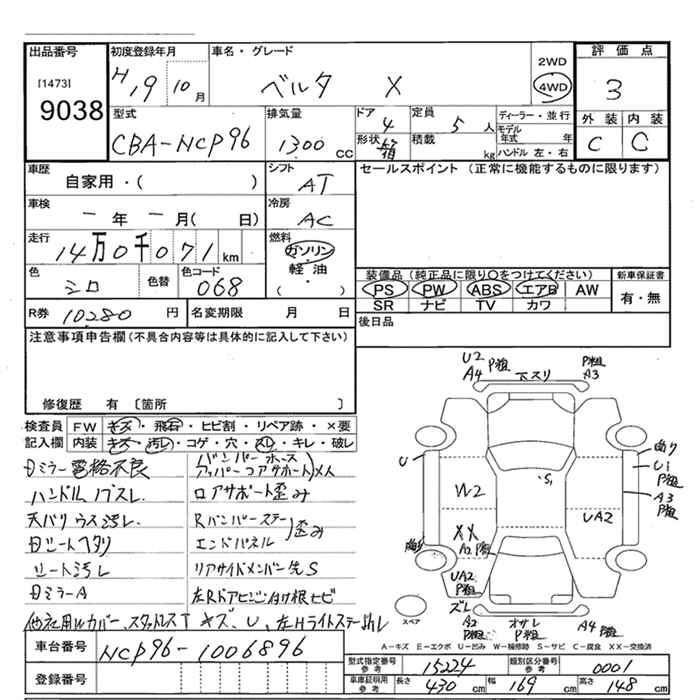 出品番号 初度登録年月 車名・グレード 2WD 評価点
[1473] H 19 10月 ベルタ X 4WD 3
9038
型式 排気量 ドア 定員 ディーラー・並行 外装 内装
CBA-NCP96 1300 CC 4 5 人 モデル年式 年 C C
形状 箱 積載 kg ハンドル 左・右
車歴 シフト セールスポイント (正常に機能するものに限ります)
自家用・( ) AT
車検 冷房
ー年ー月( 日) AC
走行 燃料
14万0千071km ガソリン
軽油
色 色替 色コード ( ・ ) 装備品 (純正品に限り○をつけてください) 新車保証書
シロ 068 PS PW ABS エアB AW 有・無
SR ナビ TV カワ
R券 10280 円 名変期限 月 日 後日品
注意事項申告欄 (不具合内容等は具体的に記入して下さい)
修復歴 有 〔箇所 〕
検査員 FW キズ・飛石・ヒビ割・リペア跡・×要
記入欄 内装 キズ・汚レ・コゲ・穴・スレ・キレ・破レ
日ミラー電格不良 バンパーホース
アッパーコアサポート メメ
ハンドルハズレ. ロアサポート歪み
天バリウス汚レ. Rバンパーステー
日シートヘタリ エンドパネル 歪み
シート汚レ リアサイドメンバー先S
日ミラーA 左Rドアヒンジ付け根ヒビ
他社用ルカバー、スタッドレスT キズ、U、左Hライトステー
車台番号 NCP96-1006896
登録番号
U2 A4 P粗 下スリ P粗 A3
U W2 S1 曲り U1 P粗
A3 P粗
UA2
XX A2 P粗
UA2 P粗
ズレ
スペア A2 P粗 オサレ P粗 A4 P粗
A-キズ E-エクボ U-凹み W-補修跡 S-サビ C-腐食 XX-交換済
型式指定番号 参考 15224 類別区分番号 参考 0001
車庫証明用 参考 長さ 430 cm 幅 169 cm 高さ 148 cm